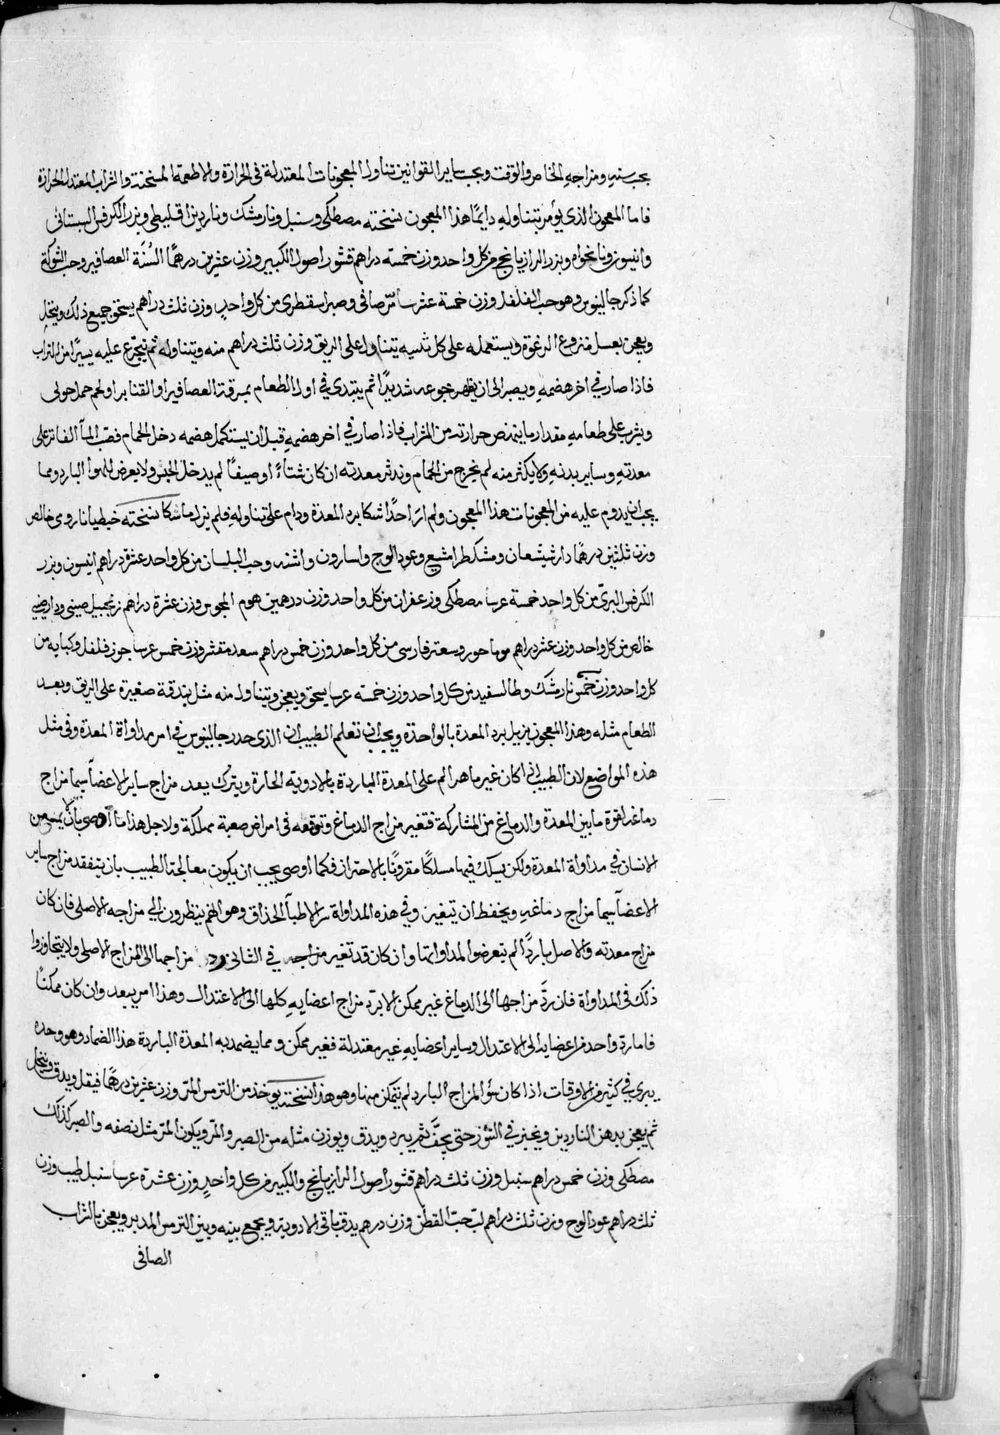 بحسب سنه ومزاجه الخاص والوقت ويجب ساير القوانين تناول المعجونات المعتدلة في الحرارة والاطعمة المسخنة والشراب المعتدل الحرارة
فاما المعجون الذي يؤمر بتناوله دايمًا هذا المعجون نسخته مصطكى وسنبل ونارمشك وناردين اقليطى وبزر الكرفس البستاني
وانيسون ونانخواه وبزر الرازيانج من كل واحد وزن خمسة دراهم قشور اصول الكبير وزن عشرين درهمًا السُنة العصافير وحب الشوكة
كما ذكر جالينوس وهو حب الفلفل وزن خمسة عشر مرّ صافى وصبر اسقطرى من كل واحد وزن ثلث دراهم يسحق جميع ذلك وينخل
ويعجن بعسل منزوع الرغوة ويستعمله على كل تدبيه يتناول على الريق وزن ثلث دراهم منه ويتناوله ثم يتجرّع عليه يسيرًا من الشراب
فاذا صار في اخر هضمه ويصبر الى ان يظهر جوعه شديدًا ثم يبتدى في اول الطعام بمرقة العصافير او القنابر او لحم حمل حولى
ويشرب على طعامه مقدار ما ينهض حرارته من الشراب فاذا صار في اخر هضمه قبل ان يستكمل هضمه دخل الحمام فصّب المآ الفاتر على
معدته وساير بدنه ولا يكثر منه ثم يخرج من الحمام وتدثر معدته ان كان شتاءً او صيفًا ثم يدخل الخيش ولا يعرض للهوا البارد ومما
يجب ان يدوم عليه من المعجونات هذا المعجون ولم ارَ احدًا شكا برد المعدة ودام على تناوله فلم يزل ما شكا نسخته خبطيانا رومى خالص
وزن ثلثين درهمًا دارشيشعان ومشكطرامشيع وعود الوج واسارون واشنه وحب البلسان من كل واحد عشرة دراهم انيسون وبزر
الكرفس البرّي من كل واحد خمسة مصطكى وزعفران من كل واحد وزن درهمين هوم المجوس وزن عشرة دراهم زنجبيل صينى ودارصينى
خالص من كل واحد وزن عشر دراهم وسعتر فارسى من كل واحد وزن خمس دراهم سعد مقشر وزن خمس جوز فلفل وكبابه من
كل واحد وزن خمس نارمشك من كل واحد وزن خمسة يسحق ويعجن ويتناول منه مثل بندقة صغيرة على الريق وبعد
الطعام مثله وهذا المعجون يزيل برد المعدة بالواحدة ويجب ان تعلم الطبيب ان الذى حذر جالينوس في امر مداواة المعدة وفى مثل
هذه المواضع لان الطبيب اذا كان غير ماهر الم على المعدة الباردة بالادوية الحارة ويترك بعد مزاج ساير الاعضآ سيما مزاج
دماغه لقوة ما بين المعدة والدماغ من المشاركة فتغير مزاج الدماغ وتوقعه فى امراض صعبة مهلكة ولاجل هذا ما اوصى بان يمتنع من
الانسان في مداواة المعدة ولكن يسلك فيها مسلكًا مقرونًا بالاحتراز فكما أوصى يجب ان يكون معالجة الطبيب بان يتفقد مزاج ساير
الاعضآ سيما مزاج دماغه ويحفظ ان تتغير وفي هذه المداواة الاطبآ الحذاق وهو انهم ينظرون الى مزاجه الاصلى فان كان
مزاج معدته والاصل باردًا لم يتعرضوا لمداواتها وان كان قد تغير مزاجه في الثانى مزاجها الى المزاج الاصلى ولا يتجاوزوا
ذلك فى المداواة فان ردّ مزاجها الى الدماغ غير ممكن الا بردّ مزاج اعضايه كلها الى الاعتدال وهذا امر يبعد وان كان ممكنًا
فاما ردّ واحد من اعضايه الى الاعتدال وساير اعضايه غير معتدلة فغير ممكن ومما يضمد به المعدة الباردة هذا الضماد وهو وحده
يبرى في كثير من الاوقات اذا كان سؤ المزاج البارد لم يتمكن منها وهو هذا نسخته يوخذ من الترمس المرّ وزن عشرين درهمًا فيقلى ويدق وينخل
ثم يعجن بدهن الناردين ويخبز في التنور حتى يجفّ ثم يبرد ويدق ويوزن مثله من الصبر والمرّ ويكون المرّ مثل نصفه والصبر كذلك
مصطكى وزن خمس دراهم سنبل وزن ثلث دراهم قشور اصول الرازيانج والكبير من كل واحد وزن عشرة سنبل طيب وزن
ثلث دراهم عود الوج وزن ثلث دراهم لبّ حبّ القطن وزن درهم يدق باقى الادوية ويجمع بينه وبين الترمس المدبر ويعجن بالشراب
الصافى